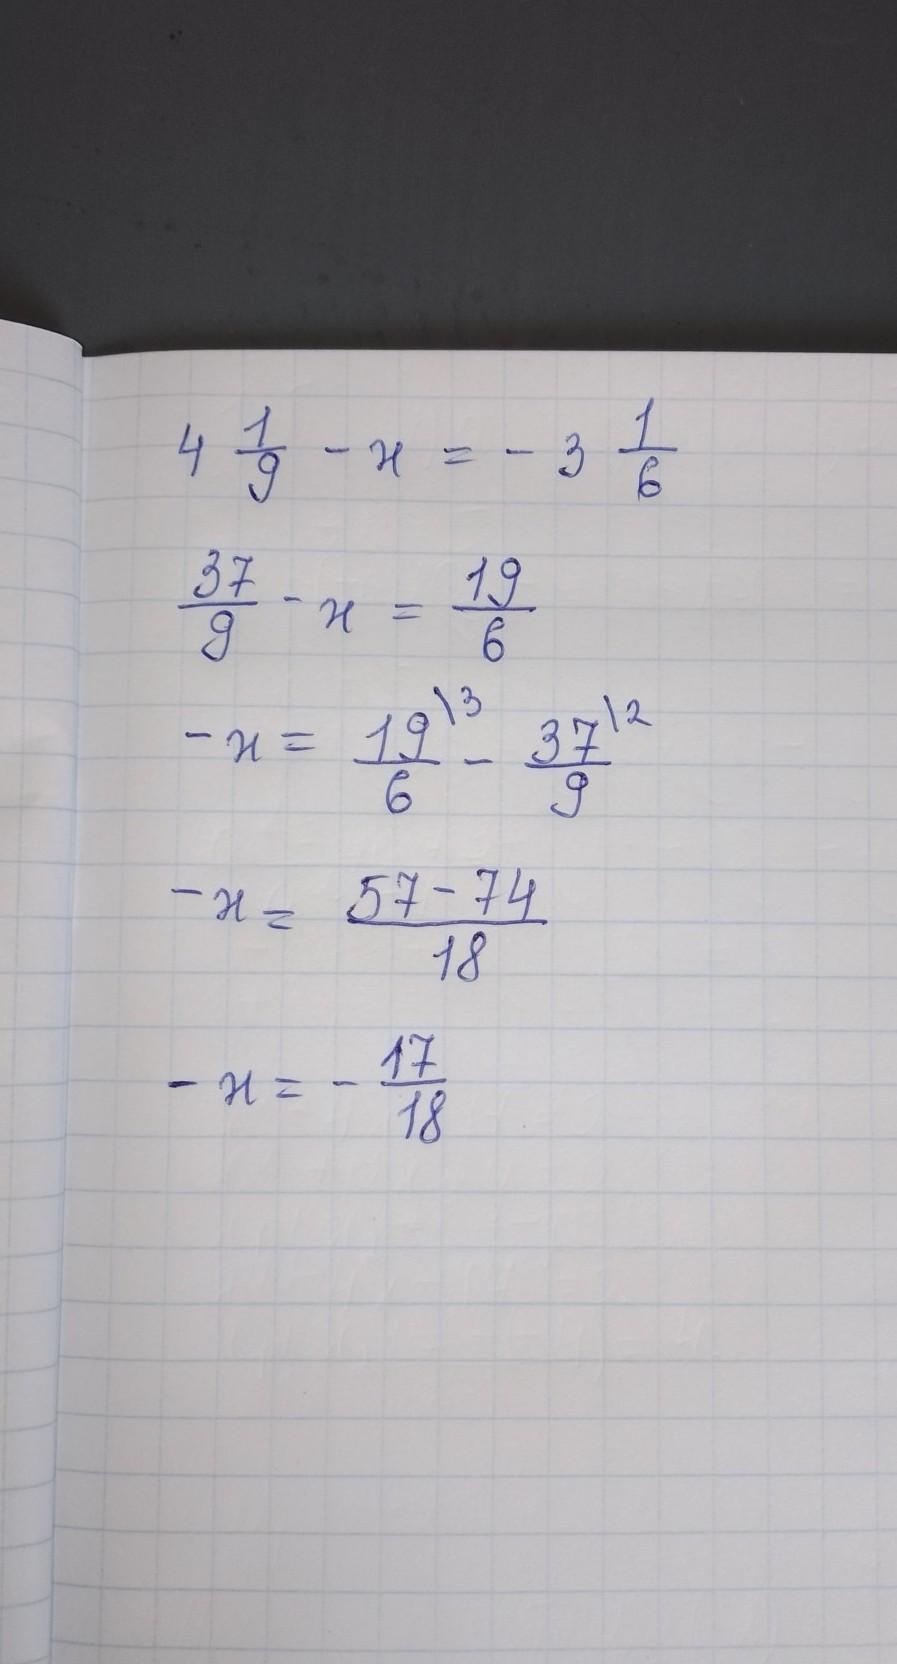 4 1/9 - x = - 3 1/6
37/9 - x = 19/6
- x = 19\3/6 - 37\2/9
- x = 57 - 74/18
- x = - 17/18